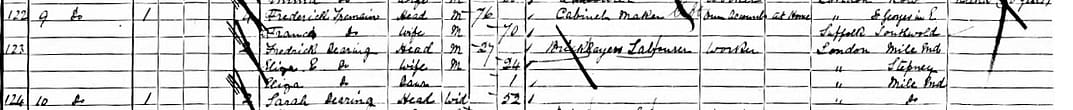 122 9 Do 1 Frederick Tremain Head M 76 Cabinet Maker Own Account at Home " St Georges in E
Frances Do Wife M 70 Suffolk Southwold
123 Fredrick Dearing Head M 27 Bricklayers Labourer Worker London Mile End
Eliza E Do Wife M 24 " Stepney
Eliza Do Daur 1 " Mile End
124 10 Do 1 Sarah Dearing Head Wid 52 " Do